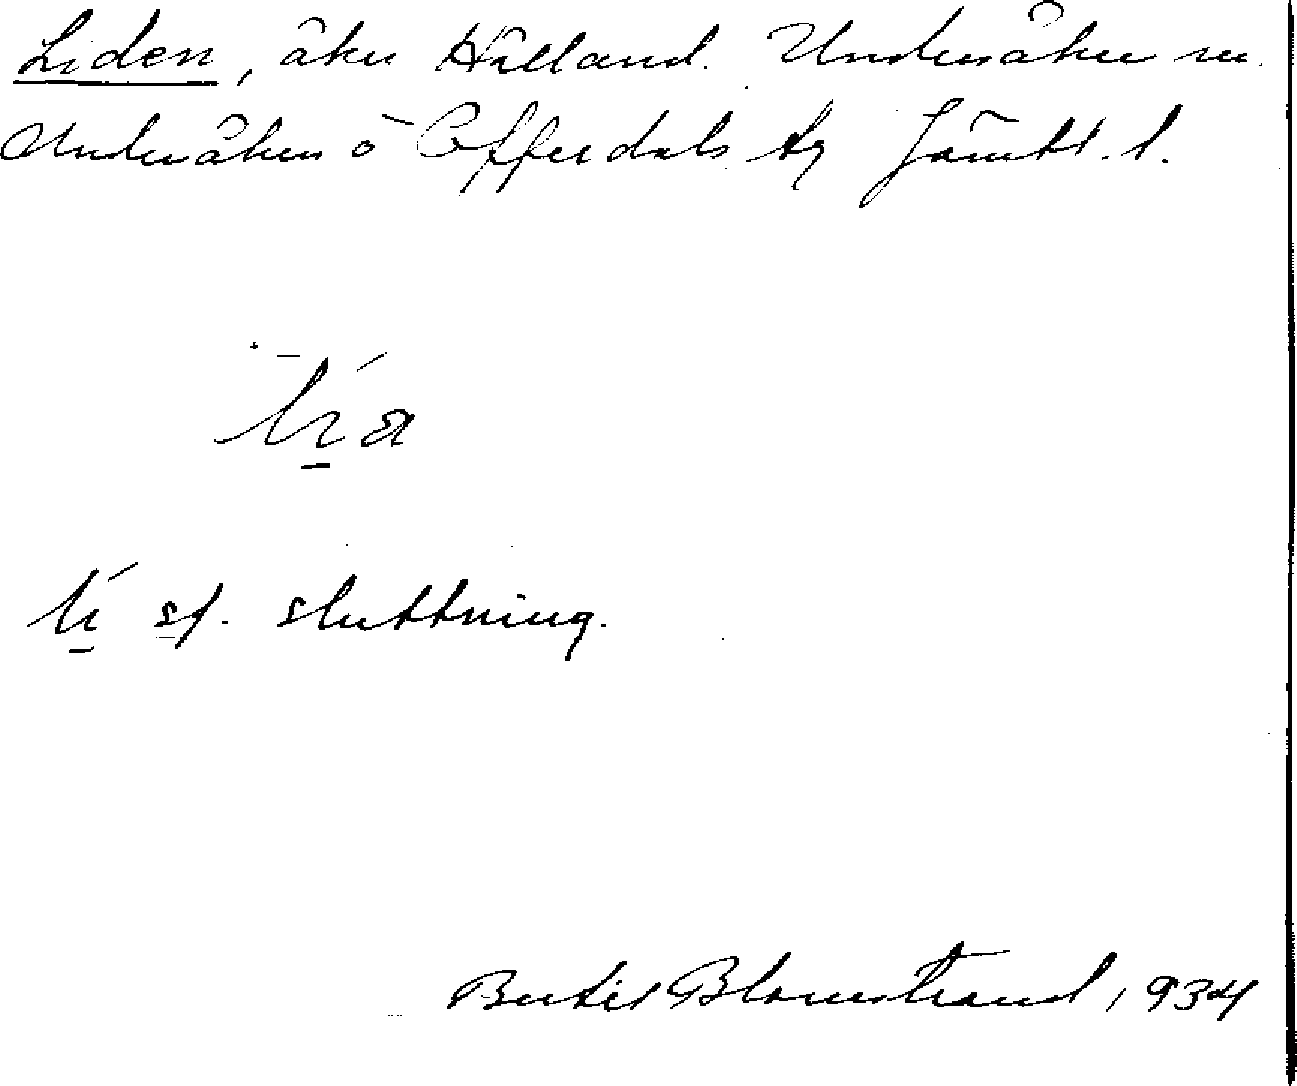 Liden, åker Hålland. Undersåker sn.
Undersåkers o Offerdals tg Jämtl. l.
sf. sluttning.
Bertil Blomstrand, 934